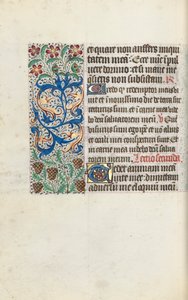 et quare non aufers iniqui
tatem mea Ecce nuc i pul
vere dormio et si mane me
quesieris non subsistam
Credo qd redemptor meus
et in novissimo die de terra sur
recturus sum et in carne mea
videbo deu salvatorem meu V Que
visurus sum ego ipse et no alius
et oculi mei conspecturi sunt Et
in carne mea videbo deu salva
torem meum Lectio secunda
Tedet animam mea
vite mee dimittam
adversu me eloquiu meu